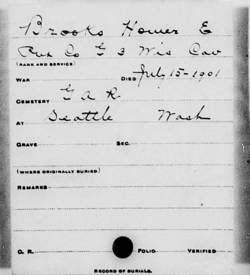 Brooks Homer E
Pvt Co G 3 Wis Cav
(RANK AND SERVICE)
WAR DIED July 15-1901
CEMETERY G A R
AT Seattle Wash
GRAVE SEC.
(WHERE ORIGINALLY BURIED)
REMARKS
O. R. FOLIO VERIFIED
RECORD OF BURIALS.